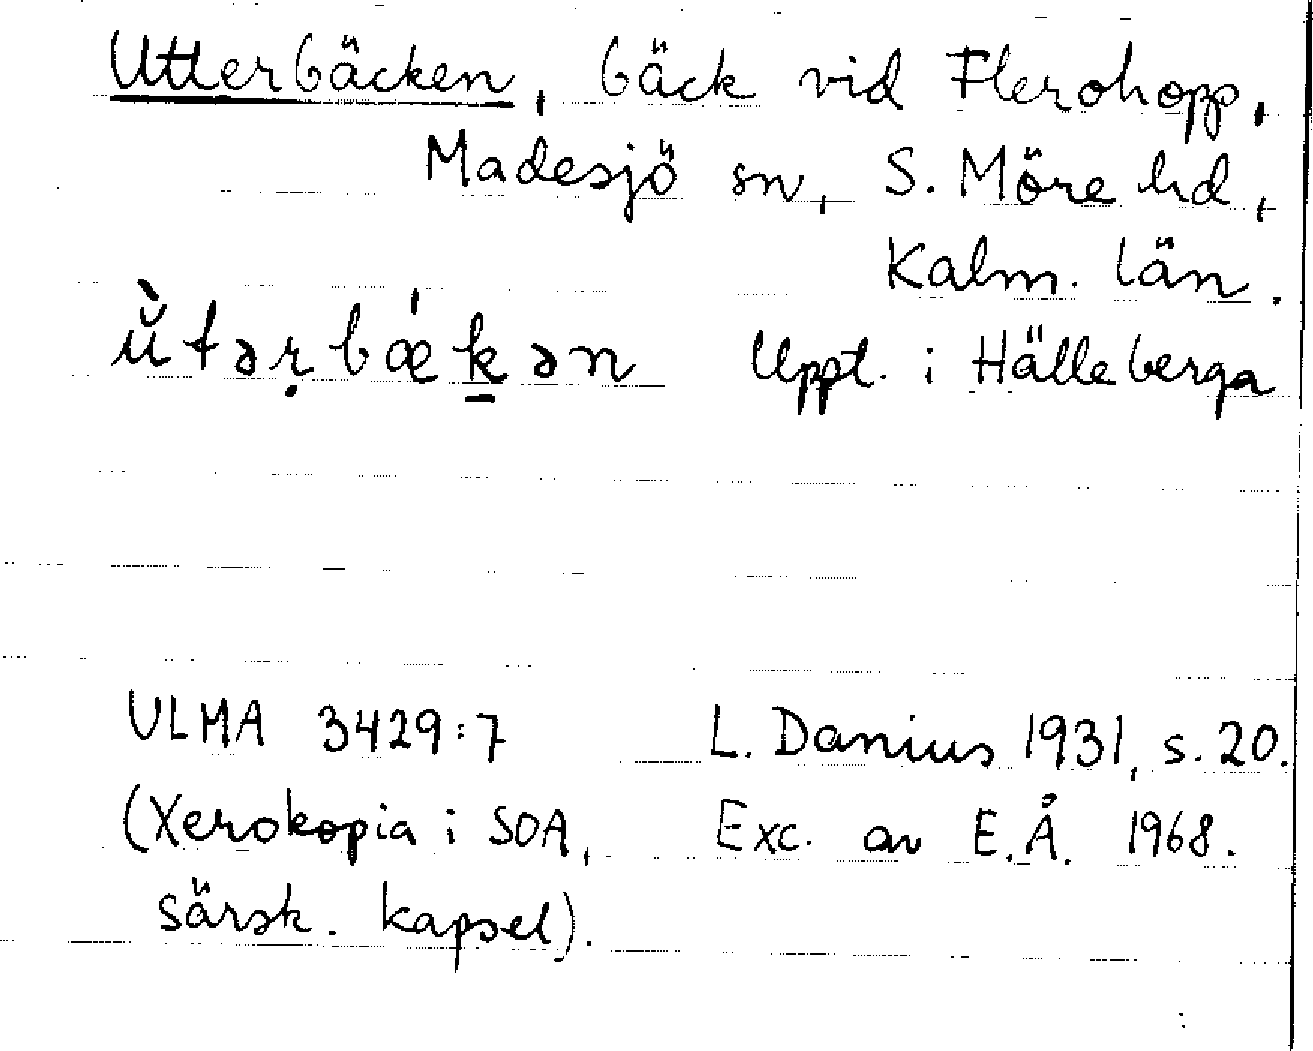 Utterbäcken, bäck vid Flerohopp,
Madesjö sn, S. Möre hd,
Kalm. län.
ùtəṛbǽk̲ən Uppt. i Hälleberga
ULMA 3429:7 L. Danius 1931, s. 20.
(Xerokopia i SOA, Exc. av E.Å. 1968.
särsk. kapsel).